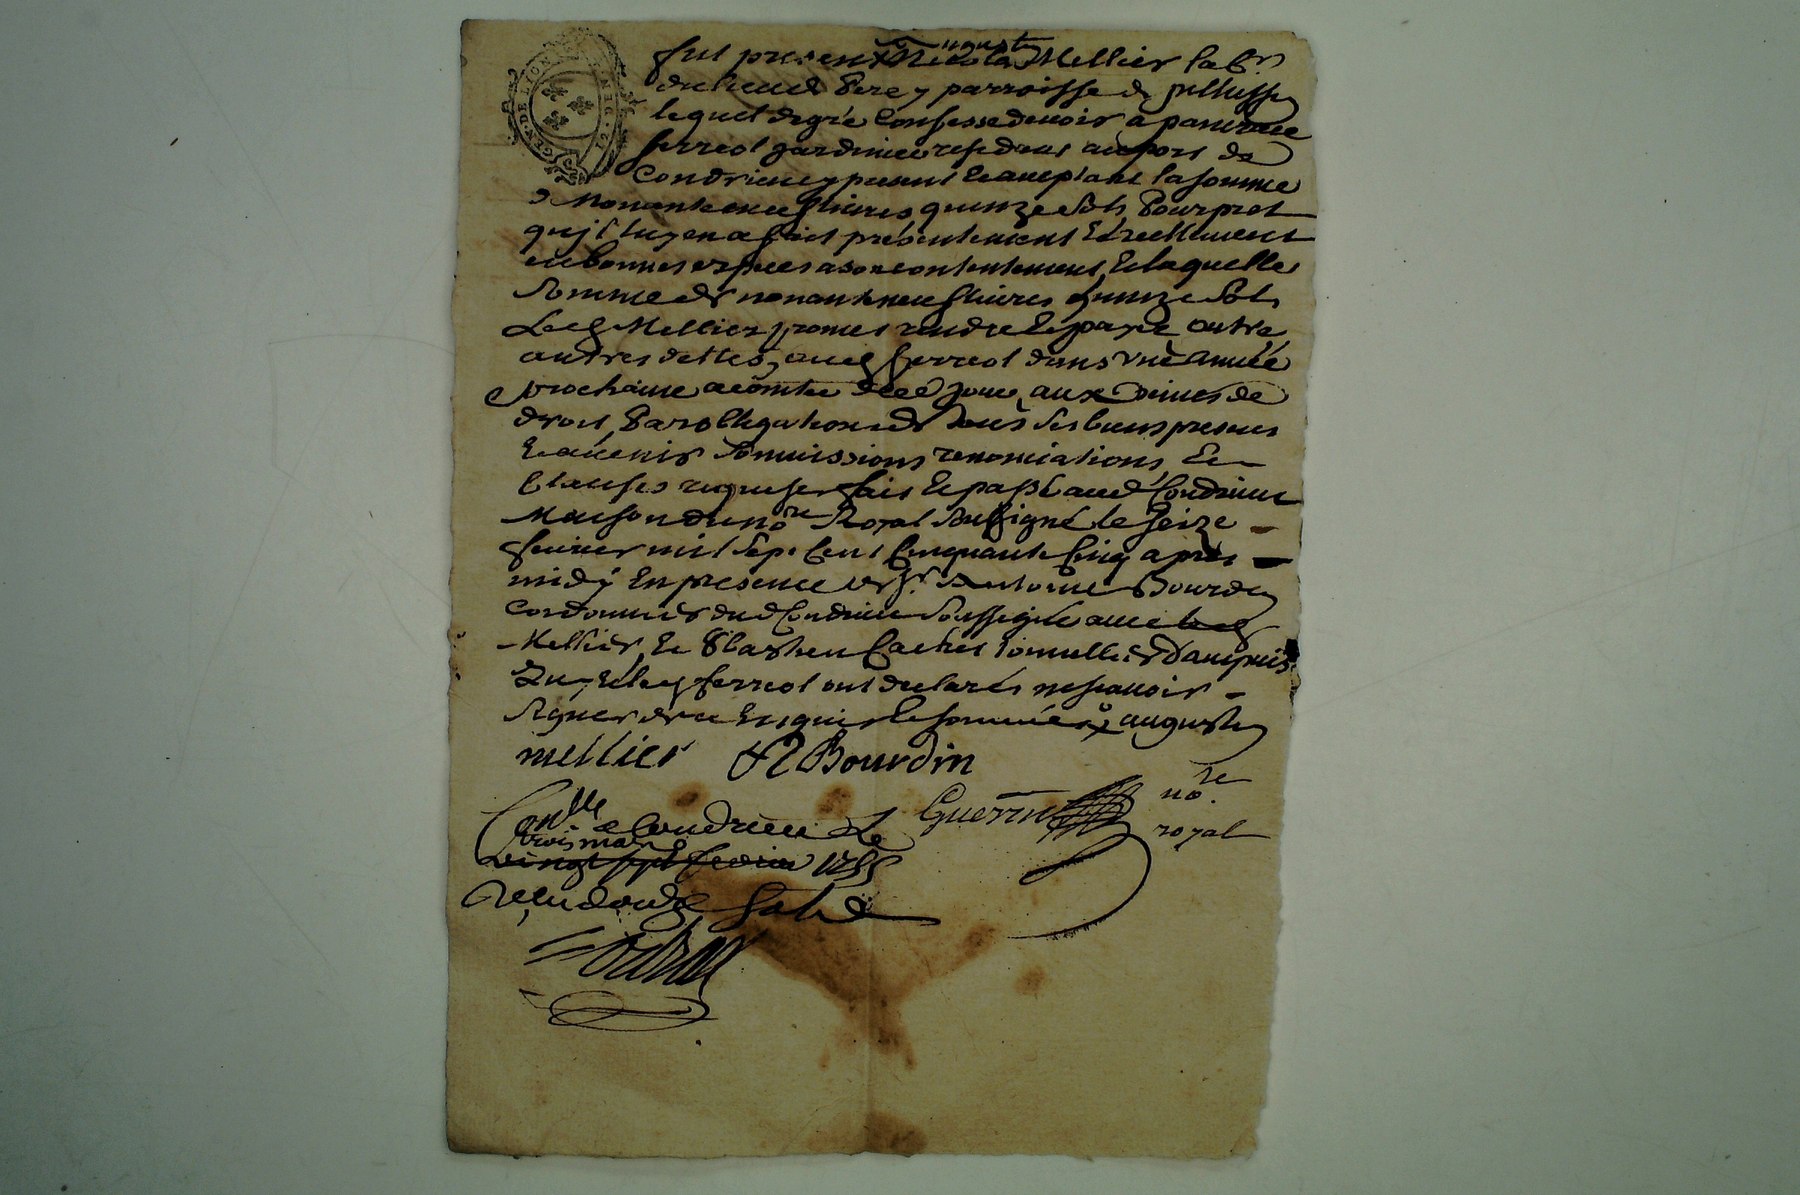 GEN. DE LYON
augustin
fut present Nicolas Mellier lab.r
du lieu de parroisse de pellussin
lequel de gré confesse devoir a
ferreol jardinier residant au port de
Condrieu y present et acceptant la somme
de Nonante neuf livres quinze sols pour pret
qu'il luy en a fait présentement et reellement
en bonnes especes a son contentement, et laquelle
Somme de nonante neuf livres quinze sols
Led Mellier promet rendre et payer outre
autres dettes, aud ferreol dans une année
prochaine a comter de ce jour, aux peines de
droit, par obligation de tous ses biens presens
et a venir Soumissions renonciations, et
Clauses requises fait et passé aud Condrieu
Maison du no.re Royal Soussigné le seize
fevrier mil sept cent cinquante cinq apres
midy En presence de s.r Antoine Bourdin
cordonnier dud Condrieu Soussigné avec led
Mellier, et tonnellier d'ampuis
Luy et led ferreol ont declarés ne scavoir
signer de ce enquis et sommés x augustin
mellier A Bourdin
Guerrin no.re
royal
Con.lle a Condrieu Le
trois mars
vingt sept fevrier 1755
Reçu douze sols